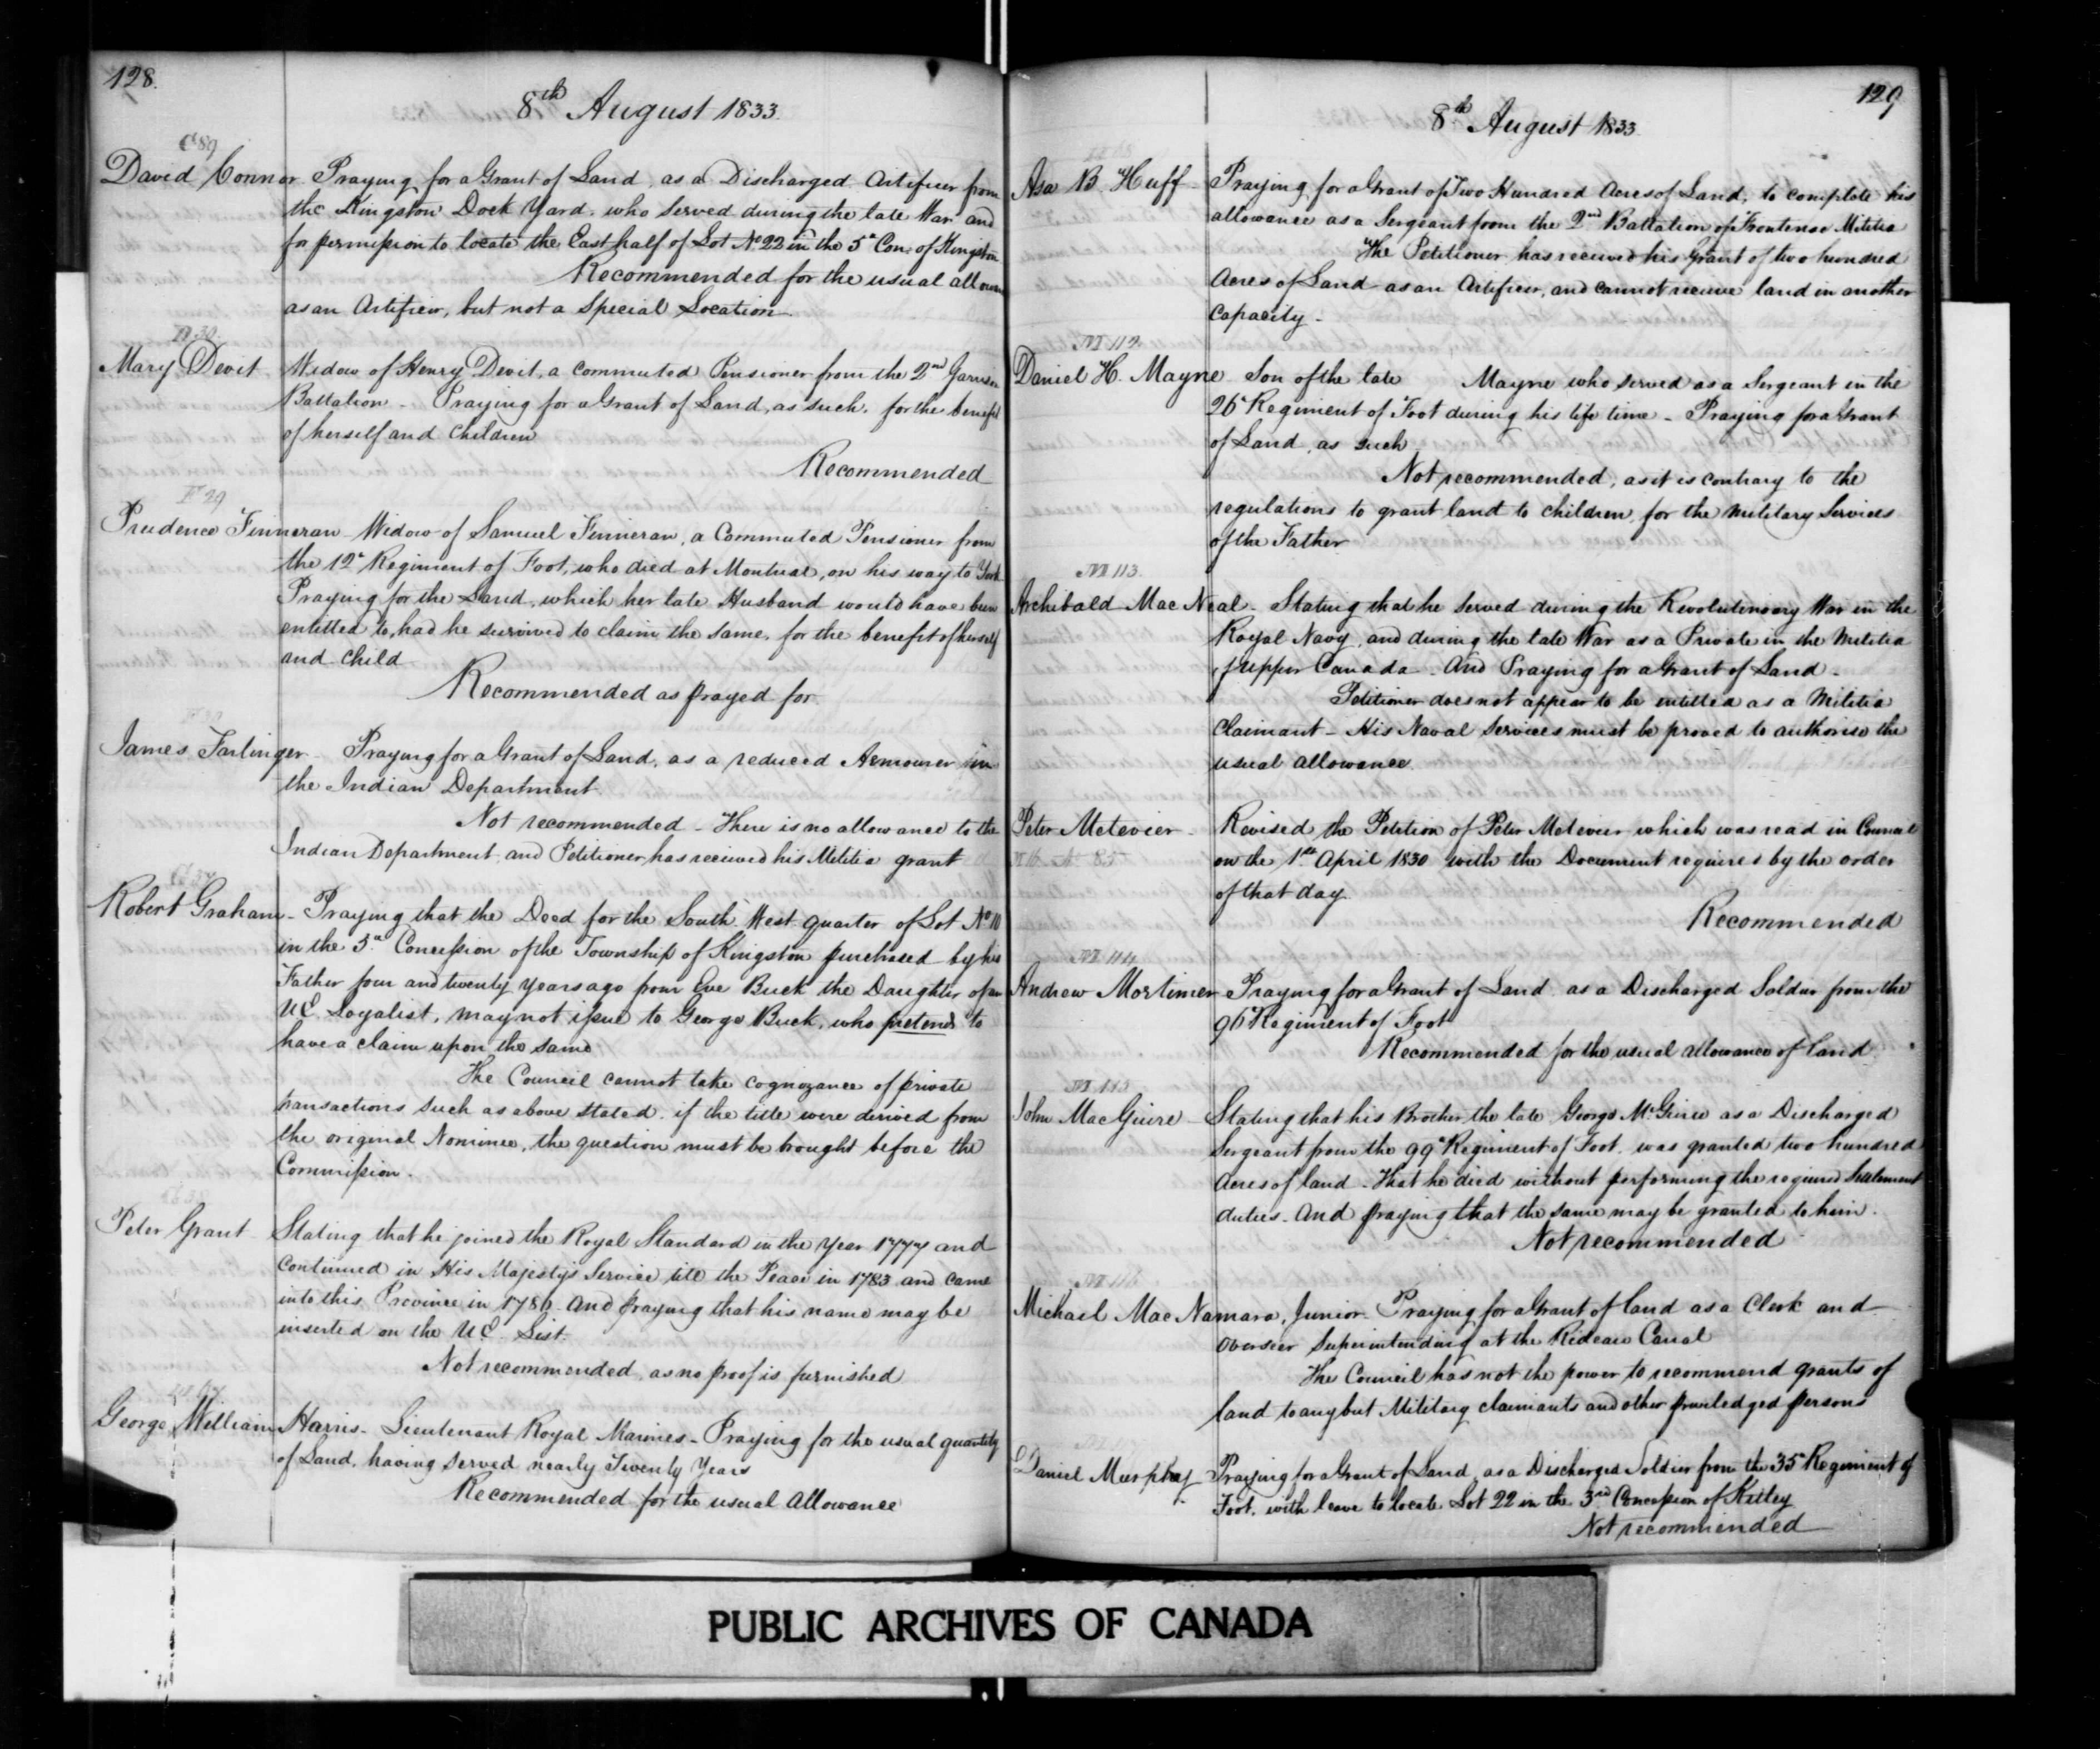 128.
8th August 1833.
C 89
David Connor - Praying for a Grant of Land, as a Discharged Artificer from
the Kingston Dock Yard, who served during the late War and
for permission to locate the East half of Lot No 22 in the 5th Con. of Kingston
Recommended for the usual allowance
as an Artificer, but not a Special Location.
D 30
Mary Devit Widow of Henry Devit, a commuted Pensioner from the 2nd Garrison
Battalion - Praying for a Grant of Land, as such, for the benefit
of herself and children
Recommended
F 29
Prudence Finneran - Widow of Samuel Finneran, a Commuted Pensioner from
the 12th Regiment of Foot, who died at Montreal, on his way to York
Praying for the Land, which her late Husband would have been
entitled to, had he survived to claim the same, for the benefit of herself
and child
Recommended as prayed for
James Farlinger - Praying for a Grant of Land, as a reduced Armourer in
the Indian Department.
Not recommended - There is no allowance to the
Indian Department, and Petitioner has received his Militia grant
Robert Graham - Praying that the Deed for the South West quarter of Lot No 10
in the 3rd Concession of the Township of Kingston purchased by his
Father four and twenty years ago from Eve Buck the Daughter of an
UE. Loyalist, may not issue to George Buck, who pretends to
have a claim upon the same
The Council cannot take cognizance of private
transactions such as above stated. if the title were derived from
the original Nominee, the question must be brought before the
Commission.
Peter Grant Stating that he joined the Royal Standard in the year 1777 and
continued in His Majesty's Service till the Peace in 1783 and came
into this Province in 1786. And praying that his name may be
inserted on the UE. List.
Not recommended, as no proof is furnished
George William Harris - Lieutenant Royal Marines - Praying for the usual quantity
of Land, having served nearly Twenty Years
Recommended for the usual Allowance
129
8th August 1833
Asa B. Huff - Praying for a Grant of Two Hundred Acres of Land, to complete his
allowance as a Sergeant from the 2nd Battalion of Frontenac Militia
The Petitioner has received his Grant of two hundred
Acres of Land as an Artificer, and cannot receive land in another
capacity -
M 112
Daniel H. Mayne Son of the late Mayne who served as a Sergeant in the
26th Regiment of Foot during his life time - Praying for a Grant
of Land, as such
Not recommended, as it is contrary to the
regulations to grant land to children, for the Military Services
of the Father
M 113.
Archibald Mac Neal - Stating that he served during the Revolutionary War in the
Royal Navy, and during the late War as a Private in the Militia
of Upper Canada - And Praying for a Grant of Land -
Petitioner does not appear to be entitled as a Militia
Claimant - His Naval Services must be proved to authorise the
usual allowance.
Peter Metevier - Revised the Petition of Peter Metevier which was read in Council
on the 1st April 1830 with the Document required by the order
of that day.
Recommended
M 114
Andrew Mortimer - Praying for a Grant of Land as a Discharged Soldier from the
96th Regiment of Foot
Recommended for the usual allowance of land
M 115
John MacGuire Stating that his Brother the late George McGuire as a Discharged
Sergeant from the 99th Regiment of Foot, was granted two hundred
Acres of land - That he died without performing the required Settlement
duties - And praying that the same may be granted to him.
Not recommended
M 116
Michael Mac Namara, Junior - Praying for a Grant of land as a Clerk and
Overseer Superintending at the Rideau Canal
The Council has not the power to recommend grants of
land to any but Military claimants and other priviledged persons
Daniel Murphy Praying for a Grant of Land, as a Discharged Soldier from the 35th Regiment of
Foot, with leave to locate Lot 22 in the 3rd Concession of Kitley
Not recommended
PUBLIC ARCHIVES OF CANADA